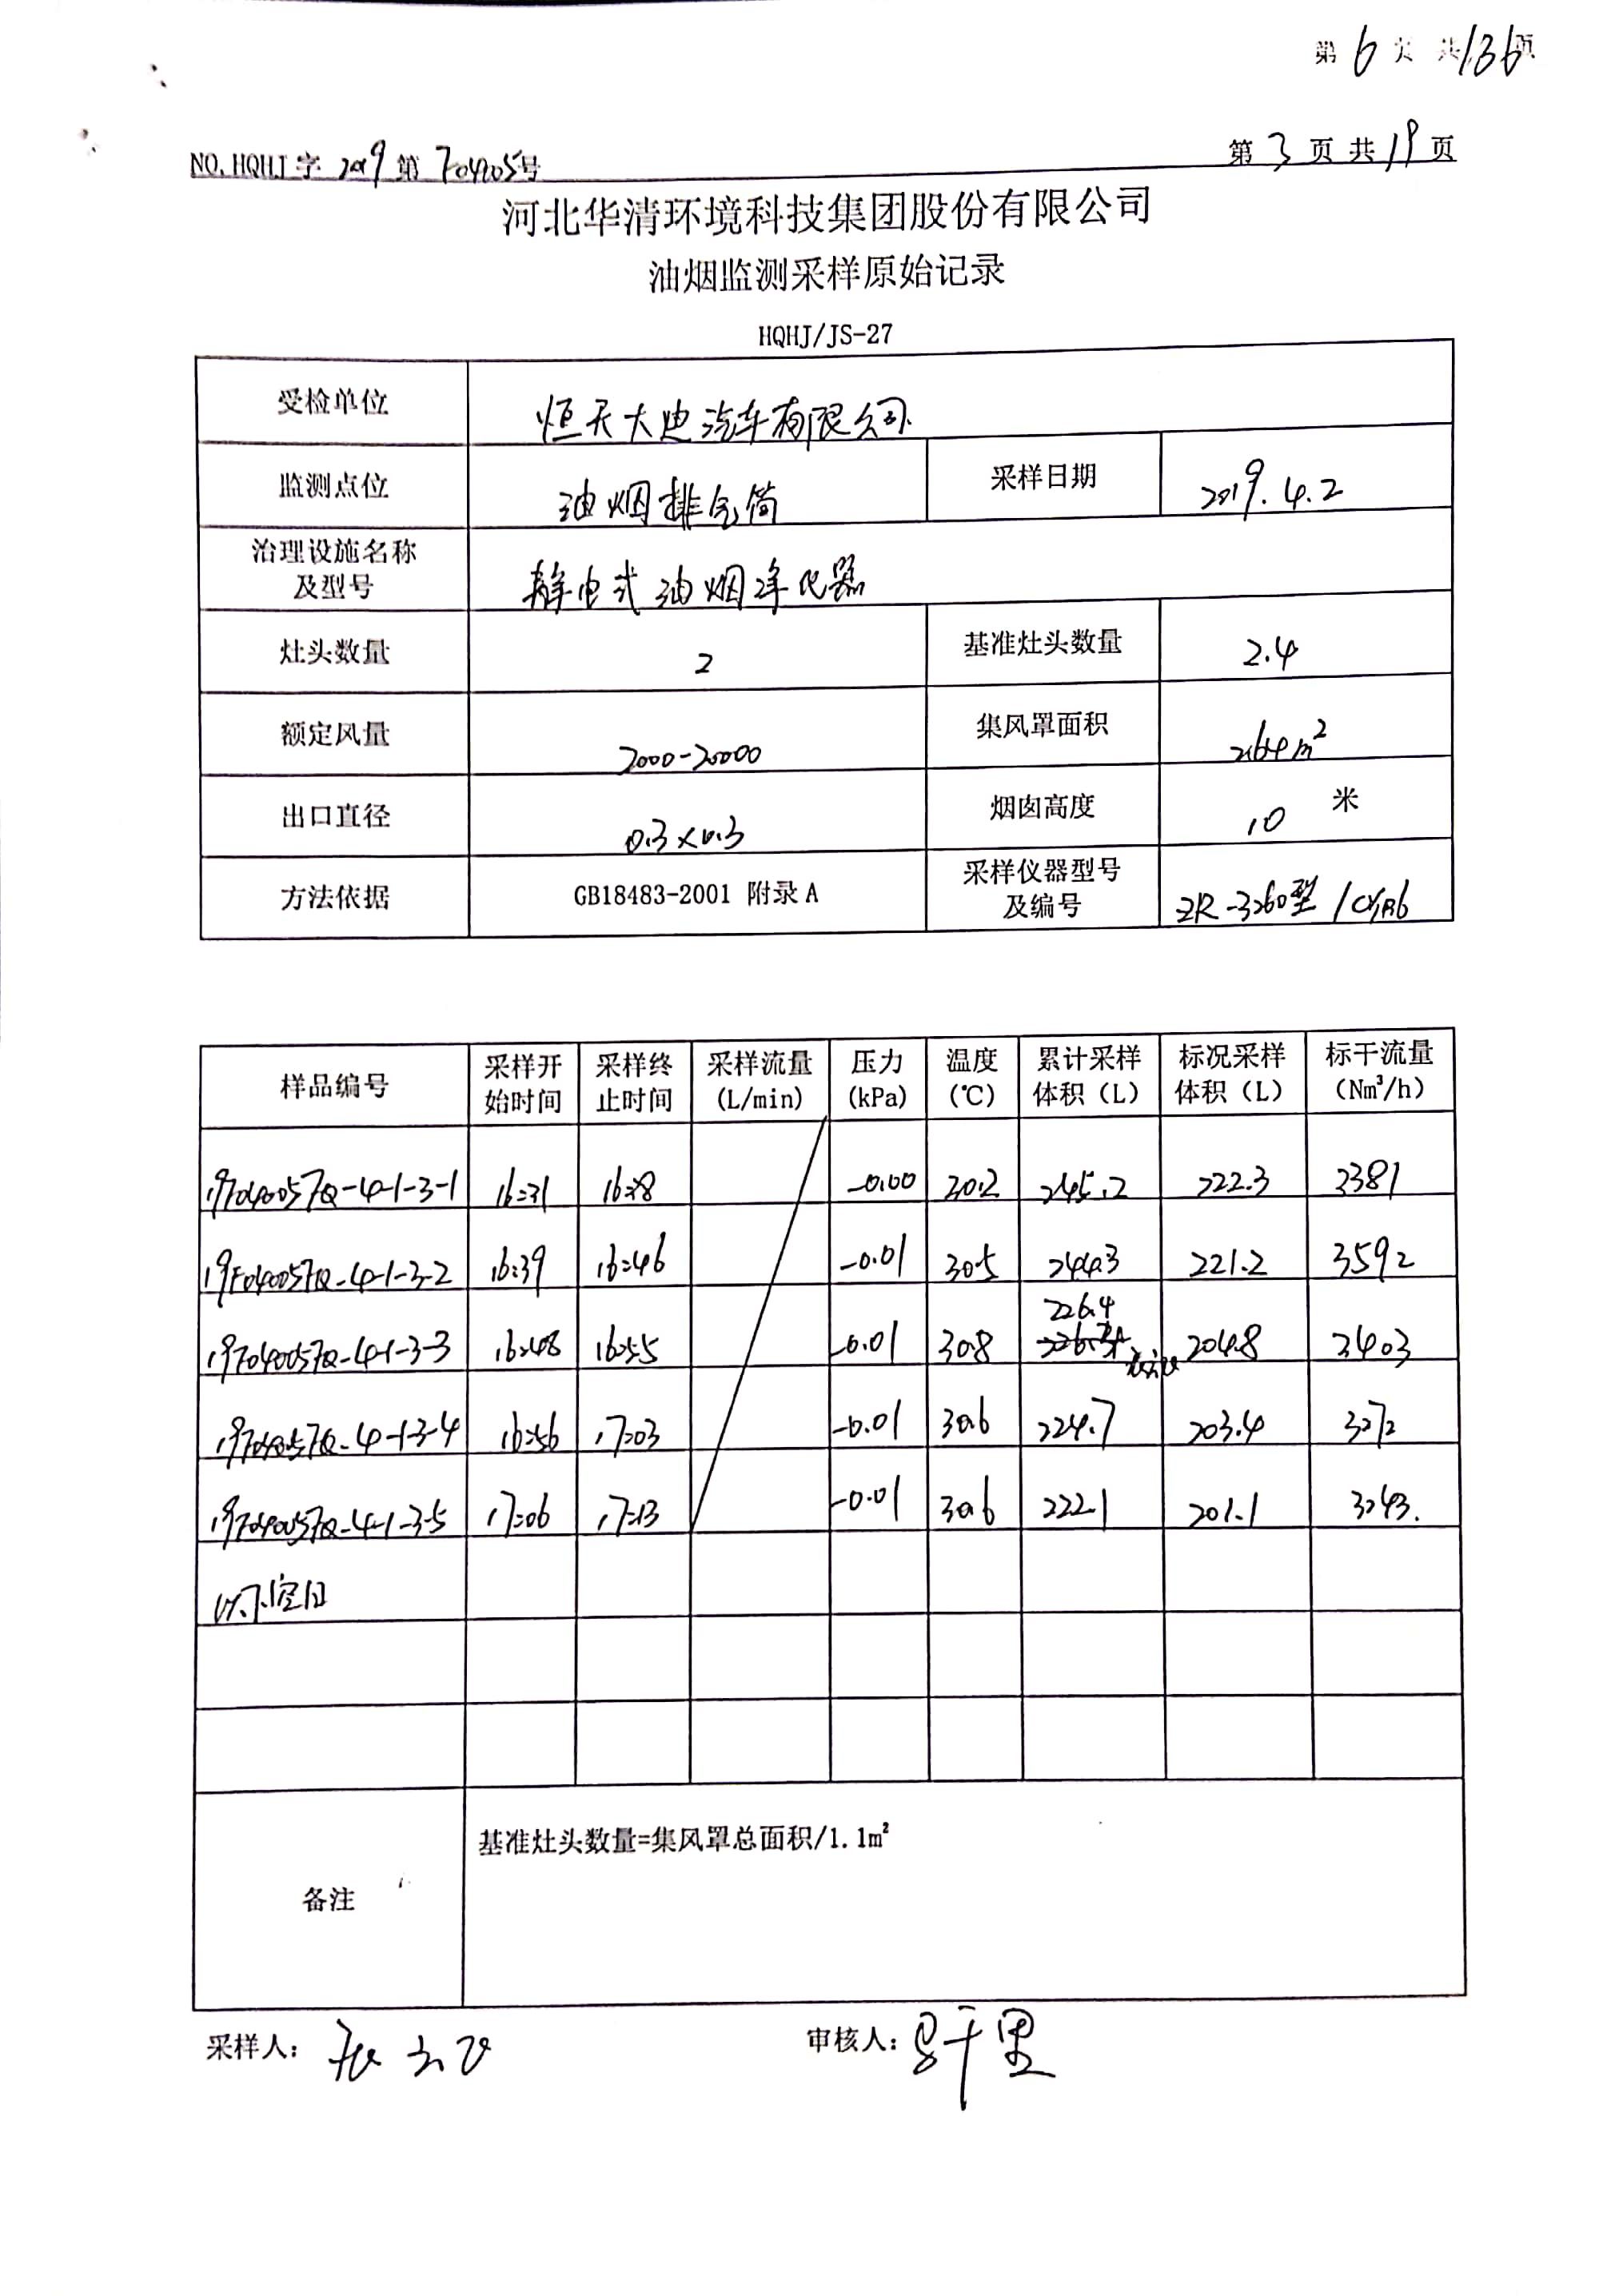 第6页 共136页
NO.HQHJ字2019第704005号 第3页共19页
河北华清环境科技集团股份有限公司
油烟监测采样原始记录
HQHJ/JS-27
受检单位 恒天大迪汽车有限公司
监测点位 油烟排气筒 采样日期 2019.4.2
治理设施名称及型号 静电式油烟净化器
灶头数量 2 基准灶头数量 2.4
额定风量 2000-20000 集风罩面积 2.64m²
出口直径 0.3×0.3 烟囱高度 10 米
方法依据 GB18483-2001 附录A 采样仪器型号及编号 ZR-3260型
样品编号 采样开始时间 采样终止时间 采样流量(L/min) 压力(kPa) 温度(℃) 累计采样体积(L) 标况采样体积(L) 标干流量(Nm³/h)
19T04005YQ-4-1-3-1 16:31 16:38 -0.00 30.2 245.2 222.3 3381
19T04005YQ-4-1-3-2 16:39 16:46 -0.01 30.5 244.3 221.2 3592
19T04005YQ-4-1-3-3 16:48 16:55 -0.01 30.8 226.4 204.8 3403
19T04005YQ-4-1-3-4 16:56 17:03 -0.01 30.6 224.7 203.4 3272
19T04005YQ-4-1-3-5 17:06 17:13 -0.01 30.6 222.1 201.1 3243
以下空白
备注 基准灶头数量=集风罩总面积/1.1m²
采样人: 审核人: